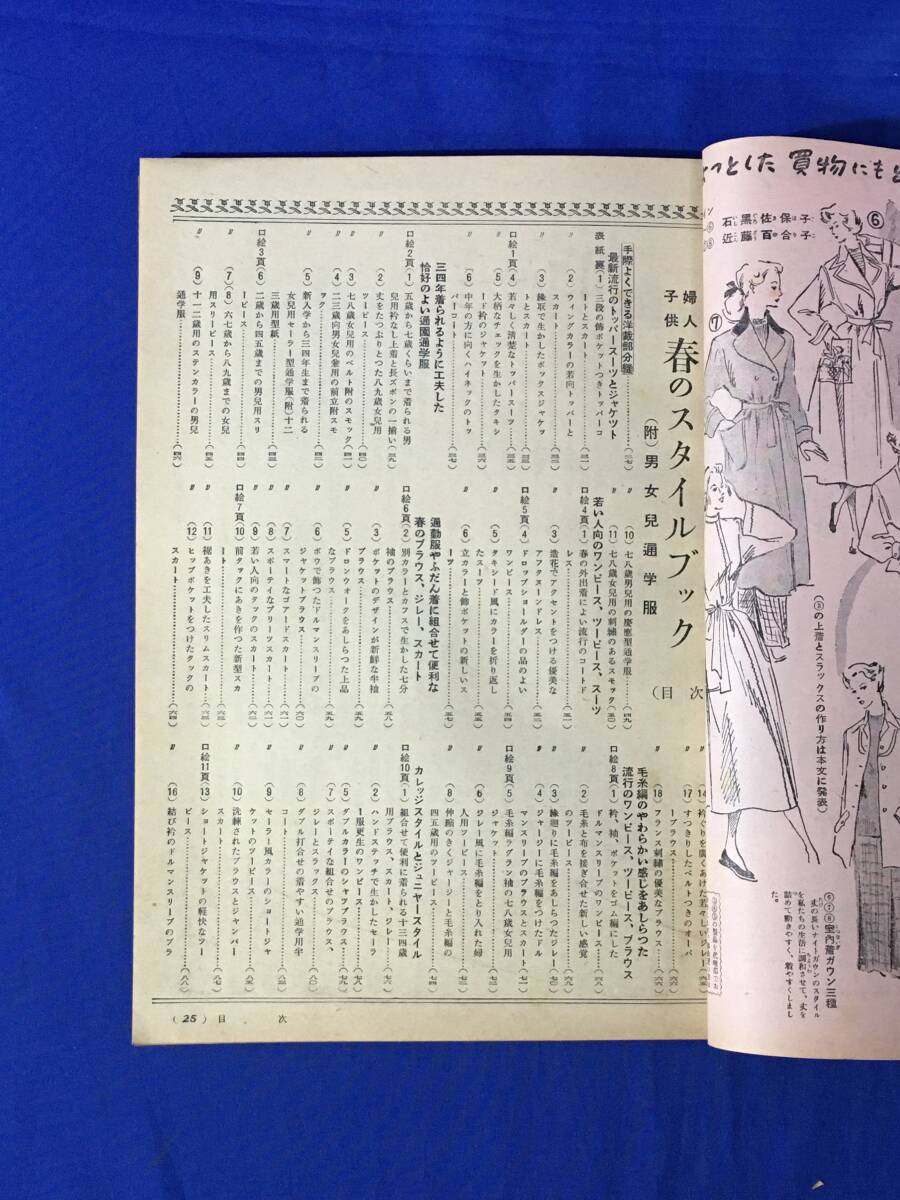 婦人
子供
春のスタイルブック
(附) 男女兒通学服
(目次)
手際よくできる洋裁部分縫……(二七)
最新流行のトッパースーツとジャケツト
表紙裏(1) 三段の飾ポケットつきトッパーコ
ートとスカート……(三一)
〃 (2) ウィングカラーの若向トッパーと
スカート……(三二)
〃 (3) 縁取で生かしたボックスジャケッ
トとスカート……(三三)
口絵1頁(4) 若々しく清楚なトッパースーツ……(三五)
〃 (5) 大柄なチェックを生かしたタキシ
ード衿のジャケット……(三六)
〃 (6) 中年の方に向くハイネックのトッ
パーコート……(三七)
三四年着られるように工夫した
恰好のよい通園通学服
口絵2頁(1) 五歳から七歳くらいまで着られる男
兒用衿なし上着と長ズボンの一揃い(三九)
〃 (2) 丈をたっぷりとった八九歳女兒用
ツーピース……(四〇)
〃 (3) 七八歳女兒用のベルト附のスモック(四一)
〃 (4) 二三歳向男女兒兼用の前立附スモ
ック……(四二)
〃 (5) 新入学から三四年生まで着られる
女兒用セーラー型通学服(附)十二
三歳用型紙……(四三)
口絵3頁(6) 二歳から四五歳までの男兒用スリ
ーピース……(四四)
〃 (7)(8) 六七歳から八九歳までの女兒
用スリーピース……(四五)
〃 (9) 十一二歳用のステンカラーの男兒
通学服……(四六)
〃 (10) 七八歳男兒用の慶應型通学服……(四九)
〃 (11) 七八歳女兒用の刺繍のあるスモック(五〇)
若い人向のワンピース、ツーピース、スーツ
口絵4頁(1) 春の外出着によい流行のコートド
レス……(五一)
〃 (3) 造花でアクセントをつける優美な
アフタヌーンドレス……(五三)
口絵5頁(4) ドロップショールダーの品のよい
ワンピース……(五四)
〃 (5) タキシード風にカラーを折り返し
たスーツ……(五五)
〃 (6) 立カラーと飾ポケットの新しいス
ーツ……(五七)
通勤服やふだん着に組合せて便利な
春のブラウス、ジレー、スカート
口絵6頁(2) 別カラーとカフスで生かした七分
袖のブラウス……(五八)
〃 (3) ポケットのデザインが新鮮な半袖
ブラウス……(五九)
〃 (5) ドロンウオークをあしらつた上品
なブラウス……(五九)
〃 (6) ボウで飾つたドルマンスリーブの
ジャケットブラウス……(六〇)
〃 (7) スマートなゴアードスカート……(六一)
〃 (8) スポーティなプリーツスカート……(六二)
〃 (9) 若い人向のタックのスカート……(六三)
口絵7頁(10) 前タックにあきを作つた新型スカ
ート……(六三)
〃 (11) 裾あきを工夫したスリムスカート……(六三)
〃 (12) ヒップポケットをつけたタックの
スカート……(六四)
〃 (14) 衿ぐりを廣くあけた若々しいジレー
〃 (17) すつきりしたベルトつきのオーバ
ーブラウス……
〃 (18) フランス刺繍の優美なブラウス……
毛糸編のやわらかい感じをあしらつた
流行のワンピース、ツーピース、ブラウス
口絵8頁(1) 衿、袖、ポケットをゴム編にした
ドルマンスリーブのワンピース……(六八)
〃 (2) 毛糸と布を接ぎ合せた新しい感覚
のツーピース……
〃 (3) 縁廻りに毛糸編をあしらつたジレー(七〇)
〃 (4) ジャージーに毛糸編をつけたドル
マンスリーブのブラウスとスカート(七一)
口絵9頁(5) 毛糸編ラグラン袖の七八歳女兒用
ジャケット……(七二)
〃 (6) ジレー風に毛糸編をとり入れた婦
人用ツーピース……(七三)
〃 (8) 伸縮のきくジャージーと毛糸編の
四五歳用のツーピース……(七四)
カレッジスタイルとジュニヤースタイル
口絵10頁(1) 組合せて便利に着られる十三四歳
用ブラウス、スカート、ジレー
〃 (2) ハンドステッチで生かしたセーラ
ー服更生のワンピース……(七八)
〃 (5) ダブルカラーのシャツブラウス……
〃 (7) スポーティな組合せのブラウス、
ジレーとスラックス……(八〇)
〃 (8) ダブル打合せの着やすい通学用半
コート……
〃 (9) セーラー風カラーのショートジャ
ケットのツーピース……
〃 (10) 洗練されたブラウスとジャンパー
スカート……(八七)
口絵11頁(13) ショートジャケットの軽快なツー
ピース……
〃 (16) 結び衿のドルマンスリーブのブラ
(八八)
(25) 目次
つとした買物にも
石黒佐保子
近藤百合子
⑥
⑦
(③の上着とスラックスの作り方は本文に発表)
⑥⑦⑧室内着ガウン三種
丈の長いナイトガウンのスタイル
を私たちの生活に調和させて、丈を
詰めて動きやすく、着やすくしまし
た。